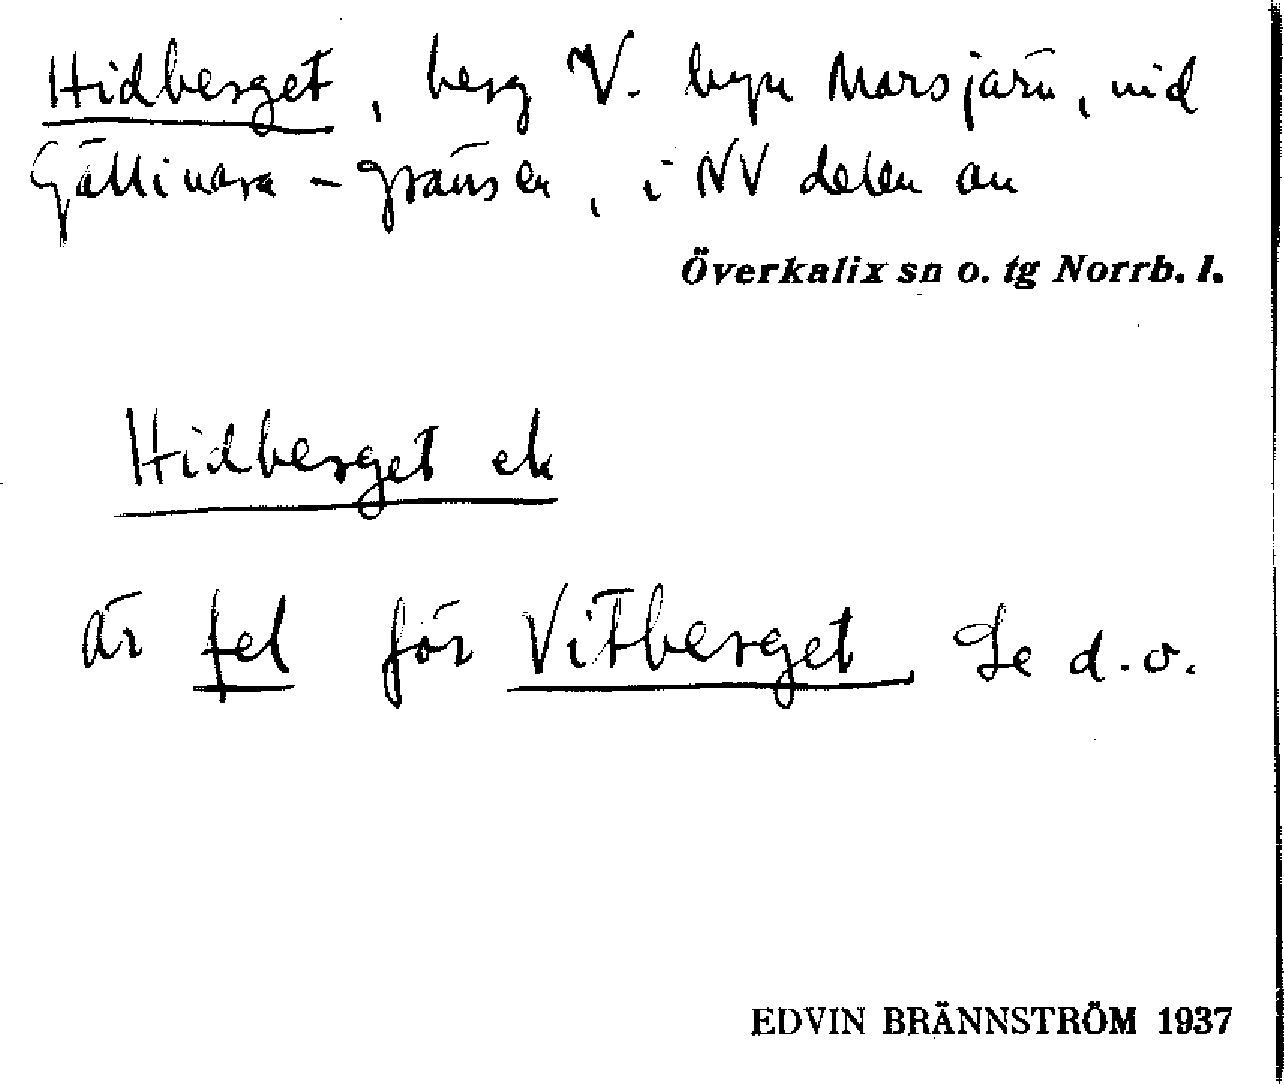 Hidberget, berg V. byn Marsjärv, vid
Gällivare-gränsen, i NV delen av
Överkalix sn o. tg Norrb. l.
Hidberget ek
är fel för Vitberget. Se d.o.
EDVIN BRÄNNSTRÖM 1937